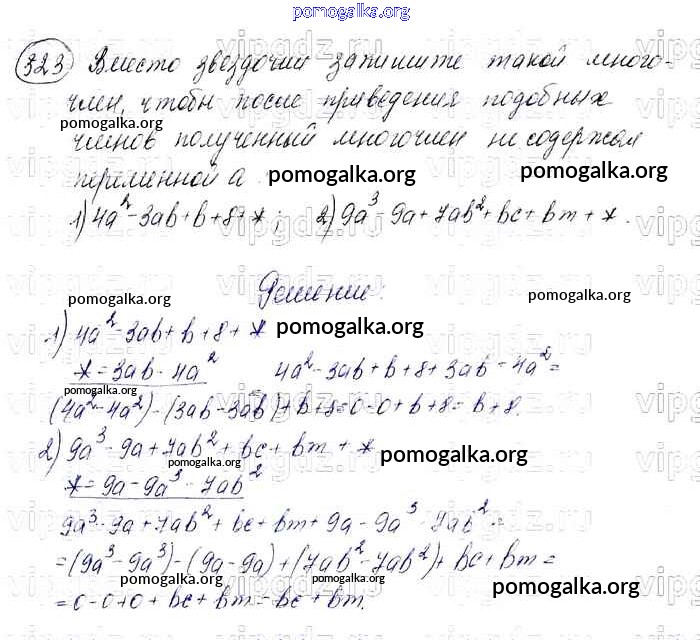 pomogalka.org
323 Вместо звездочки запишите такой много-
член, чтобы после приведения подобных
pomogalka.org
членов полученный многочлен не содержал
переменной а pomogalka.org pomogalka.org
1) 4a² - 3ab + b + 8 + * ; 2) 9a³ - 9a + 7ab² + bc + bm + * .
Решение:
pomogalka.org pomogalka.org
1) 4a² - 3ab + b + 8 + * pomogalka.org
* = 3ab - 4a² 4a² - 3ab + b + 8 + 3ab - 4a² =
pomogalka.org
(4a² - 4a²) - (3ab - 3ab) + b + 8 = 0 - 0 + b + 8 = b + 8.
2) 9a³ - 9a + 7ab² + bc + bm + *
pomogalka.org pomogalka.org
* = 9a - 9a³ - 7ab²
9a³ - 9a + 7ab² + bc + bm + 9a - 9a³ - 7ab² =
= (9a³ - 9a³) - (9a - 9a) + (7ab² - 7ab²) + bc + bm =
pomogalka.org pomogalka.org pomogalka.org
= 0 - 0 + 0 + bc + bm = bc + bm.